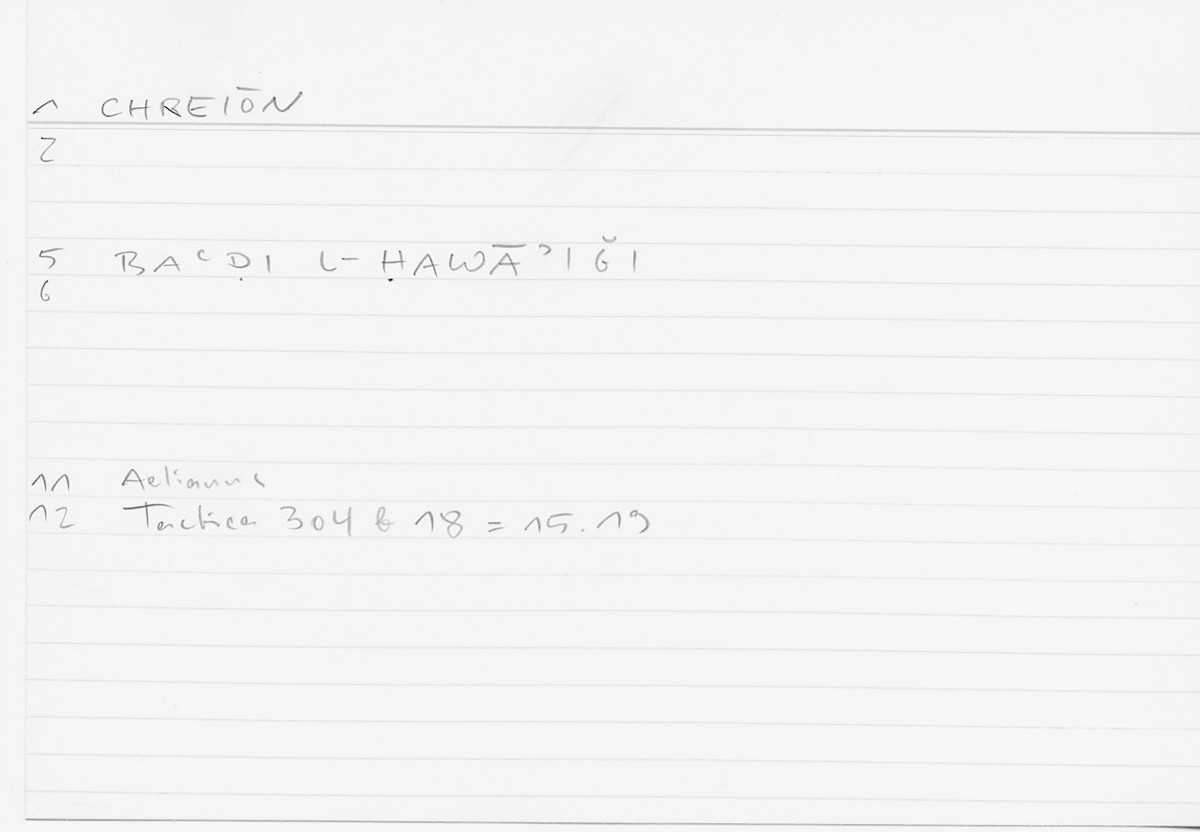 1 CHREIŌN
2
5 BAʿḌI L-ḤAWĀʾIǦI
6
11 Aelianus
12 Tactica 304 b 18 = 15.19